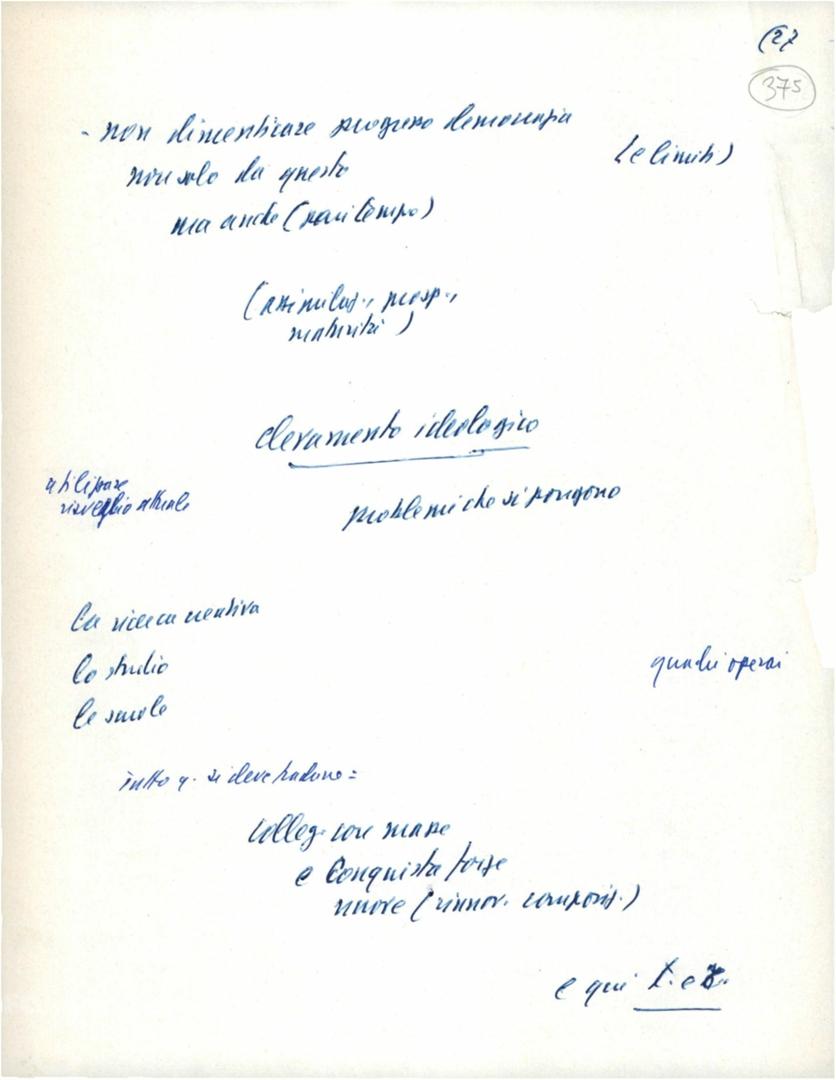 (27
375
- non dimenticare progresso democrazia
(e limiti)
non solo da questo
ma anche (
(assimilaz., prosp.,
maturità)
elevamento ideologico
utilizzare
risveglio attuale
problemi che si pongono
la ricerca creativa
lo studio
quadri operai
le scuole
tutto q. si deve tradurre =
colleg. con masse
e Conquista forze
nuove (rinnov. composiz.)
e qui